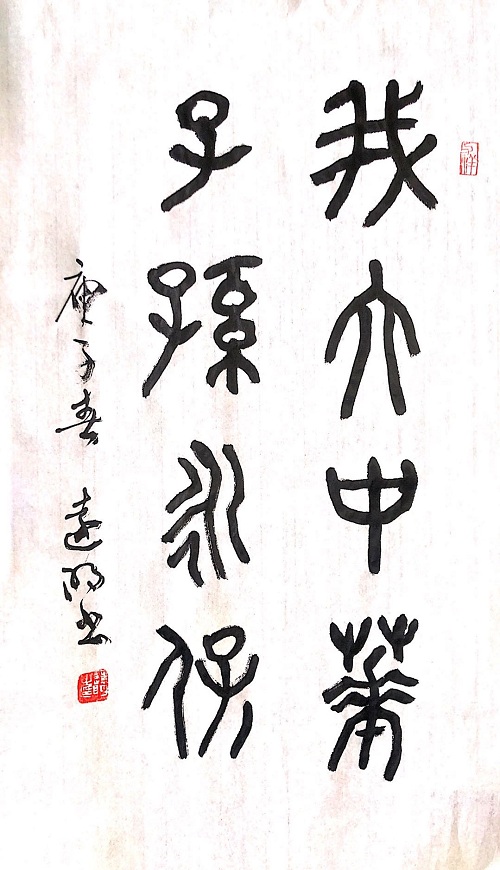 我大中華
子孫永保
庚子春 遠明书